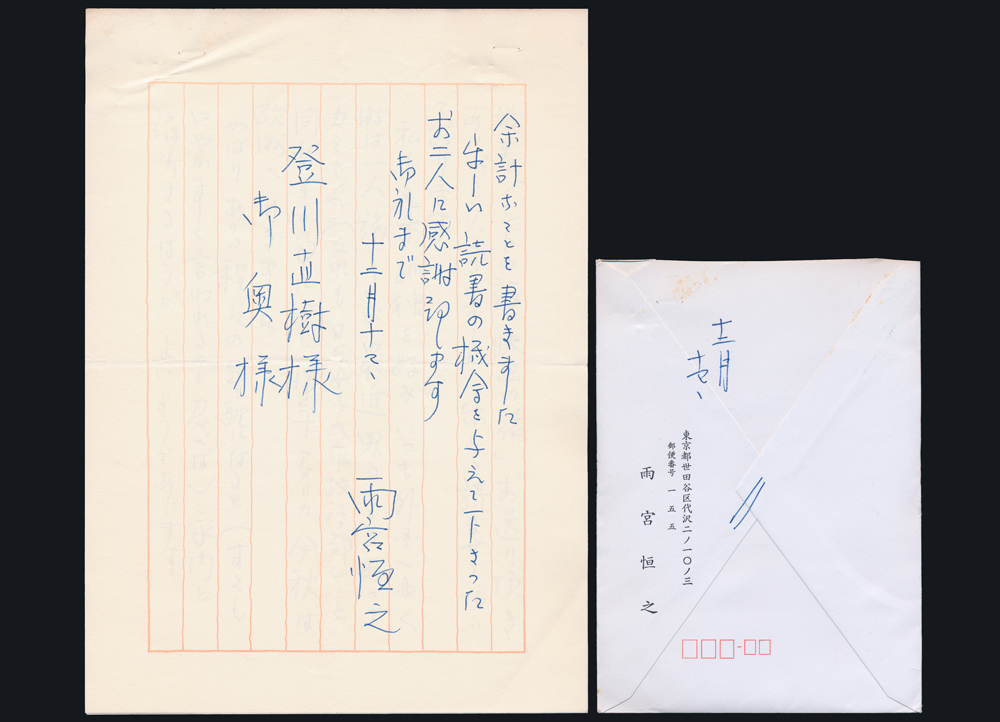 余計なことを書きました
読書の機会を与えて下さった
お二人に感謝致します
御礼まで
十二月十七日
雨宮恒之
登川直樹様
御奥様
十二月
十七日
東京都世田谷区代沢二ノ一〇ノ三
郵便番号 一五五
雨宮恒之